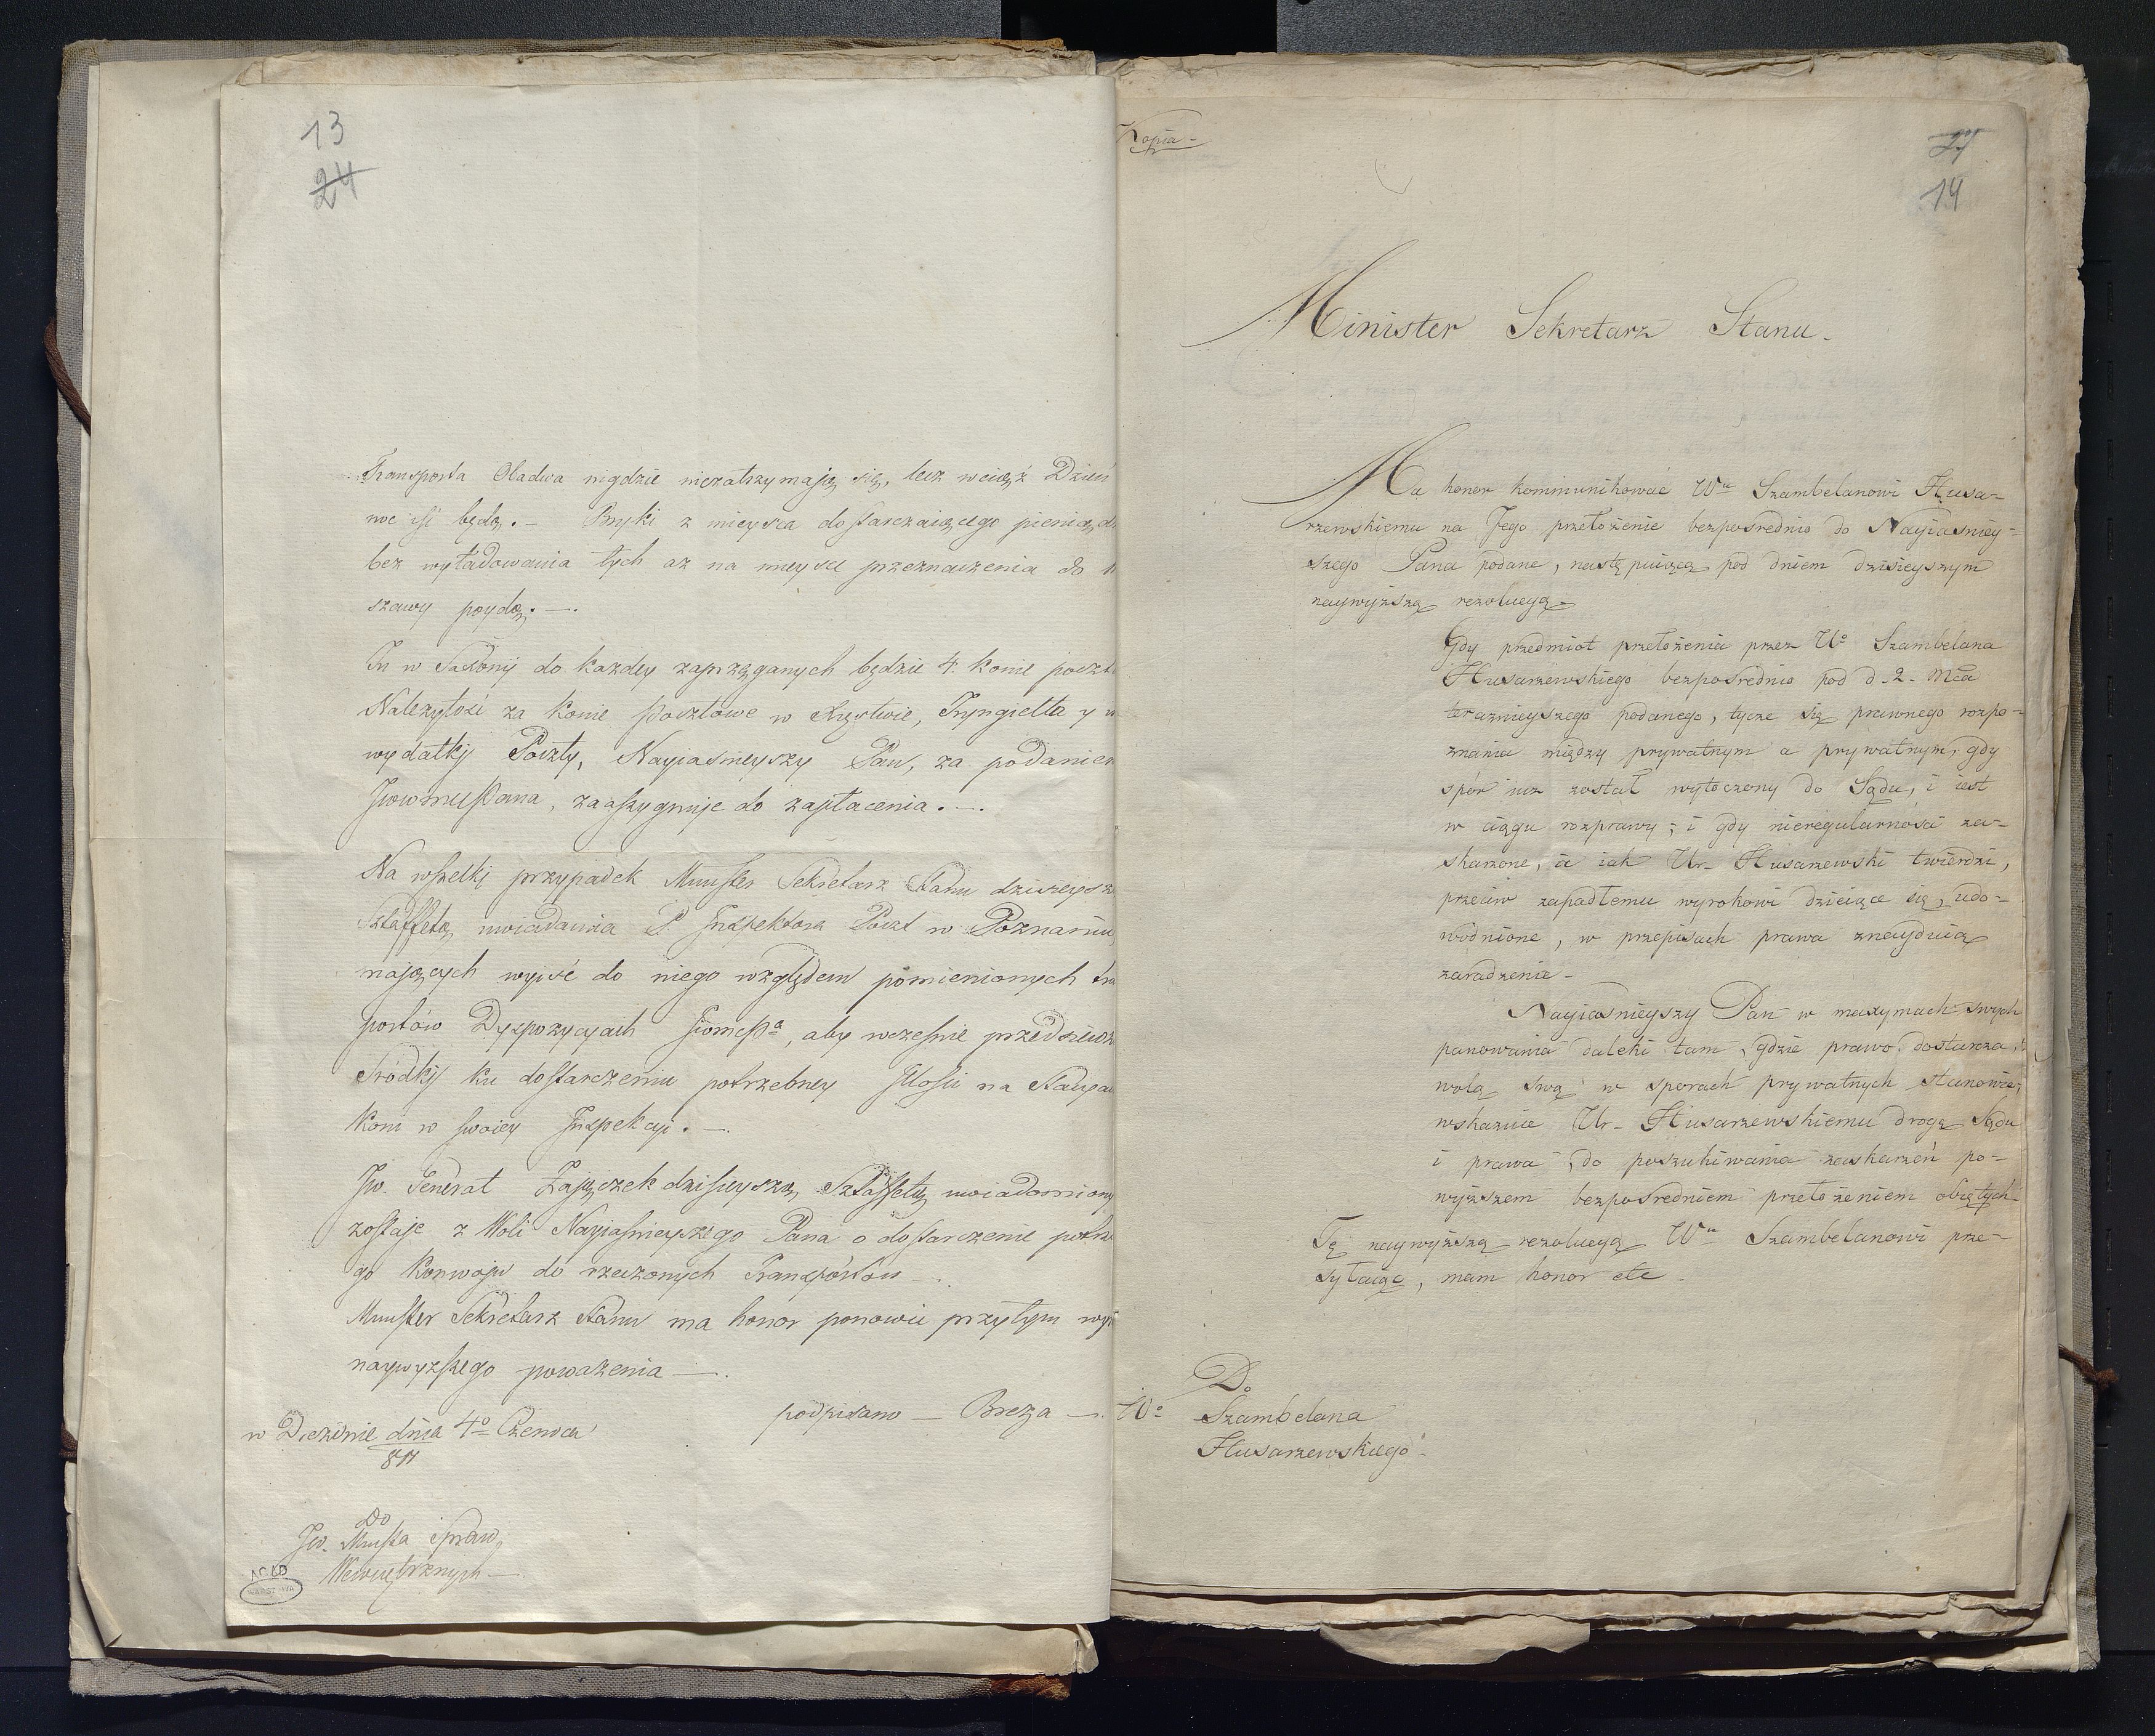 13
24
Transporta Obadwa nigdzie niezatrzymaią się, lecz wciąż Dzień
noc iść będą. — Bryki z mieysca dostarczaiącego pieniądze
bez wyładowania tych aż na mieysce przeznaczenia do
szawy poydą. —.
Tu w Saxonij do każdey zaprzęganych będzie 4. konie poczt
Należytość za konie pocztowe w Xięstwie, Tryngielta y
wydatkij Poczty, Nayiaśnieyszy Pan, za podaniem
Jwwmu Pana, zaassygnuje do zapłacenia. —.
Na wszelkij przypadek Minister Sekretarz Stanu dzisieysz
Sztaffetą uwiadamia P. Inspektora Poczt w Poznaniu
mających wyiść do niego względem pomienionych tra
portów Dyspozycyach, aby wcześnie przedsiewz
Śródkij ku dostarczeniu potrzebney Ilości na Stacyach
Koni w swoiey Inspekcyi. —.
Jw. Generał Zajączek dzisieyszą Sztaffetą uwiadomiony
zostaje z Woli Nayjaśnieyszego Pana o dostarczenie potrz
go Konwoju do rzeczonych Transportów —.
Minister Sekretarz Stanu ma honor ponowić przytym wy
naywyższego poważenia —.
podpisano — Breza —.
w Dreznie dnia 4º Czerwca
811
Do
Jw. Mnstra Spraw
Wewnętrznych —
WARSZAWA
Kopia -
27
14
Minister Sekretarz Stanu.
Ma honor kommunikować Wu Szambelanowi Husa-
rzewskiemu na Jego przełożenie bezpośrednio do Nayiaśniey-
szego Pana podane, następuiącą pod dniem dzisieyszym
naywyższą rezolucyą -
Gdy przedmiot przełożenia przez Uo Szambelana
Husarzewskiego bezpośrednio pod d. 2. Mca
teraznieyszego podanego, tycze się prawnego rozpo-
znania między prywatnym a prywatnym, gdy
spór iuż został wytoczony do Sądu, i iest
w ciągu rozprawy; i gdy nieregularności za-
skarżone, a iak Ur. Husarzewski twierdzi,
przeciw zapadłemu wyrokowi dzieiące się, udo-
wodnione, w przepisach prawa znaydnią
zaradzenie -
Nayiaśnieyszy Pan w maxymach swych
panowania daleki tam, gdzie prawo dostarcza,
wolą swą w sporach prywatnych stanowić,
wskazuie Ur. Husarzewskiemu drogę Sądu
i prawa, do poszukiwania zaskarżeń po-
wyższem bezpośredniem przełożeniem obiętych.
Tę naywyższą rezolucyą Wu Szambelanowi prze-
syłaiąc, mam honor etc.
Do
Wo Szambelana
Husarzewskiego -